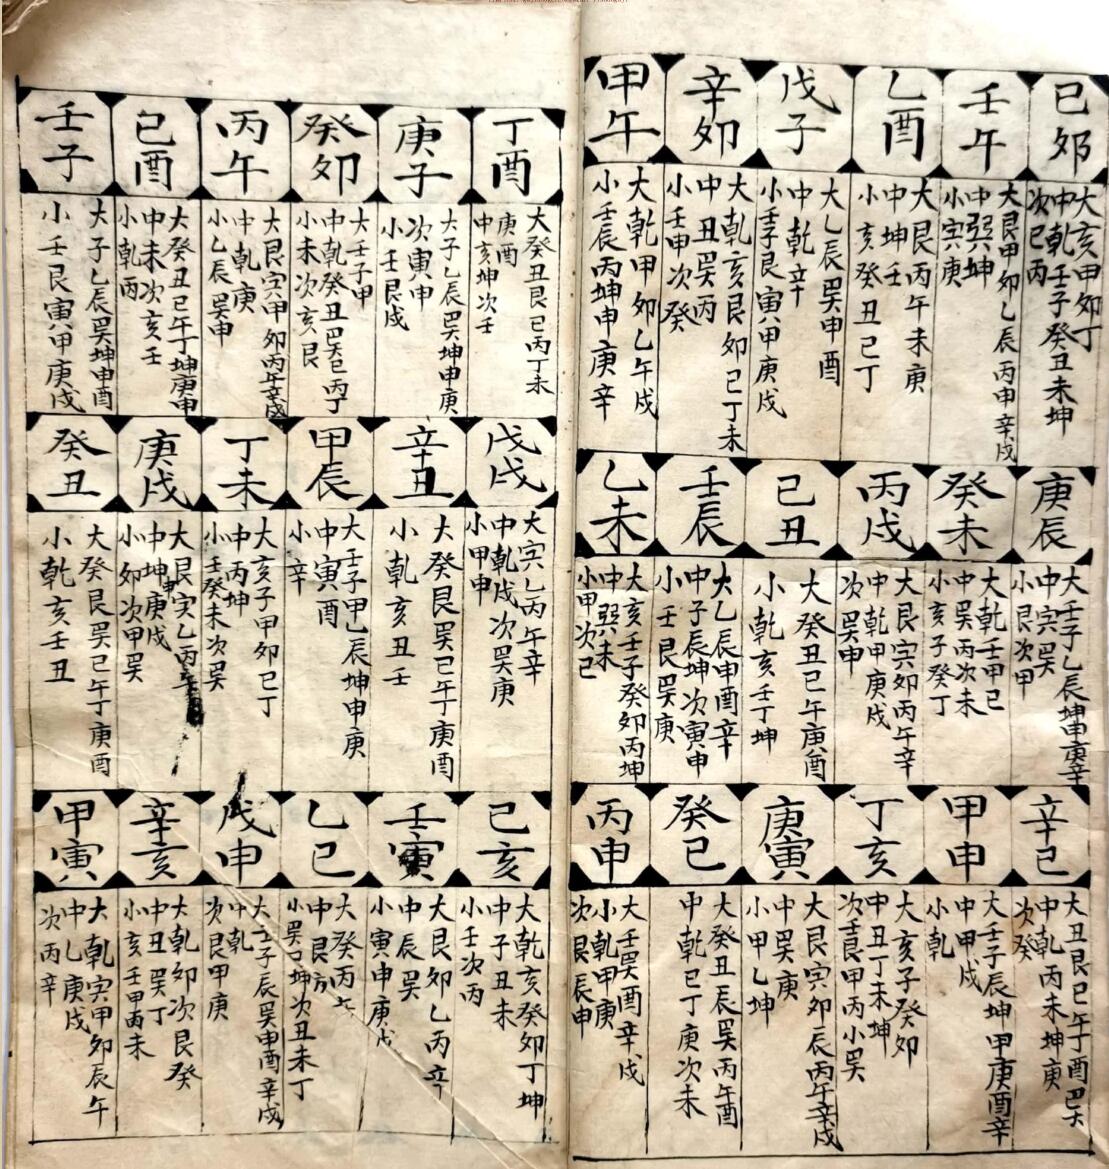 己卯
大亥甲卯丁
中乾壬子癸丑未坤
次巳丙
庚辰
大壬子乙辰坤申庚辛
中寅巽
小艮次甲
辛巳
大丑艮巳午丁酉巽
中乾丙未坤庚
次癸
壬午
大艮甲卯乙辰丙申辛戌
中巽坤
小寅庚
癸未
大乾壬甲巳
中巽丙次未
小亥子癸丁
甲申
大壬子辰坤甲庚酉辛
中甲戌
小乾
乙酉
大艮丙午未庚
中坤壬
小亥癸丑巳丁
丙戌
大艮寅卯丙午辛
中乾甲庚戌
次巽申
丁亥
大亥子癸卯
中丑丁未坤
次壬艮甲丙小巽
戊子
大乙辰巽申酉
中乾辛
小壬子艮寅甲庚戌
己丑
大癸丑巳午庚酉
小乾亥壬丁坤
庚寅
大艮寅卯辰丙午辛戌
中巽庚
小甲乙坤
辛卯
大乾亥艮卯巳丁未
中丑巽丙
小壬甲次癸
壬辰
大乙辰申酉辛
中子辰坤次寅申
小壬艮巽庚
癸巳
大癸丑辰巽丙午酉
中乾巳丁庚次未
甲午
大乾甲卯乙午戌
小壬辰丙坤申庚辛
乙未
大亥壬子癸卯丙坤
中巽未
小甲次巳
丙申
大壬巽酉辛戌
小乾甲庚
次艮辰申
丁酉
大癸丑艮巳丙丁未
庚酉
中亥坤次壬
戊戌
大寅乙丙午辛
中乾戌次巽庚
小甲申
己亥
大乾亥癸卯丁坤
中子丑未
小壬次丙
庚子
大子乙辰巽坤申庚
次寅申
小壬艮戌
辛丑
大癸艮巽巳午庚酉
小乾亥丑壬
壬寅
大艮卯乙丙辛
中辰巽
小寅申庚戌
癸卯
大壬子甲
中乾癸丑巽巳丙丁
小未次亥艮
甲辰
大壬子甲乙辰坤申庚
中寅酉
小辛
乙巳
大癸丙
中艮
小巽巳坤次丑未丁
丙午
大艮寅甲卯丙午辛戌
中乾庚
小乙辰巽申
丁未
大亥子甲卯巳丁
中丙坤
小壬癸未次巽
戊申
大壬子辰巽申酉辛戌
中乾
次艮甲庚
己酉
大癸丑巳午丁坤庚申
中未次亥壬
小乾丙
庚戌
大艮寅乙丙辛
中坤庚戌
申
小卯次甲巽
辛亥
大乾卯次艮癸
中丑巽丁
小亥壬甲丙未
壬子
大子乙辰巽坤申酉
小壬艮寅甲庚戌
癸丑
大癸艮巽巳午丁庚酉
小乾亥壬丑
甲寅
大乾寅甲卯辰午
中乙庚戌
次丙辛